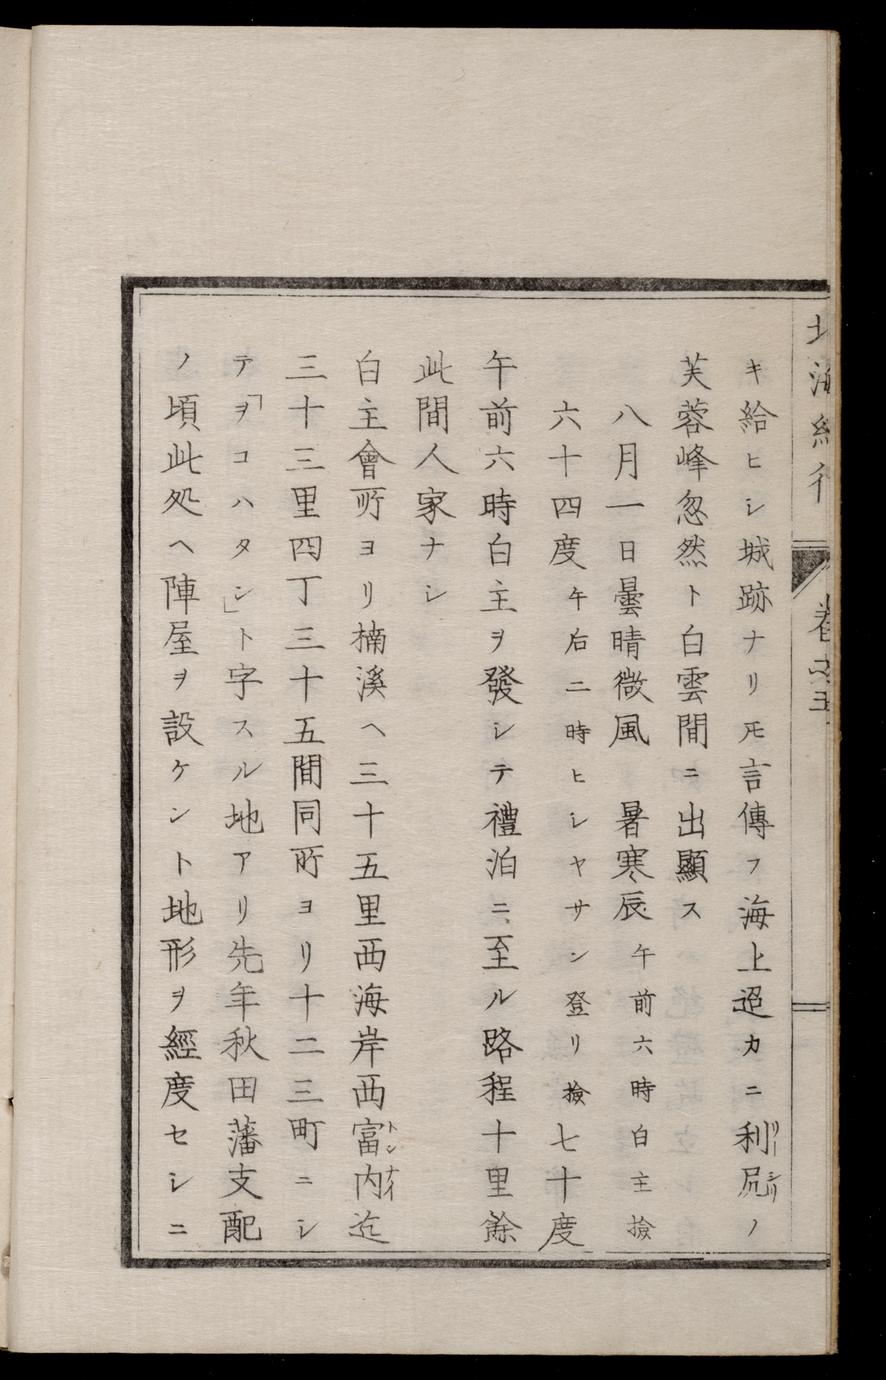 北海紀行 卷之五
キ給ヒシ城跡ナリ𪜈言傳フ海上迢カニ利尻ノ
リーシリ
芙蓉峰忽然ト白雲間ニ出顯ス
八月一日曇晴微風 暑寒辰午前六時白主撿
六十四度午后二時ヒシヤサン登リ撿七十度
午前六時白主ヲ發シテ禮泊ニ至ル路程十里餘
此間人家ナシ
白主會所ヨリ楠溪ヘ三十五里西海岸西富内迄
トンナイ
三十三里四丁三十五間同所ヨリ十二三町ニシ
テ「ヲコハタシ」ト字スル地アリ先年秋田藩支配
ノ頃此処ヘ陣屋ヲ設ケント地形ヲ經度セシニ